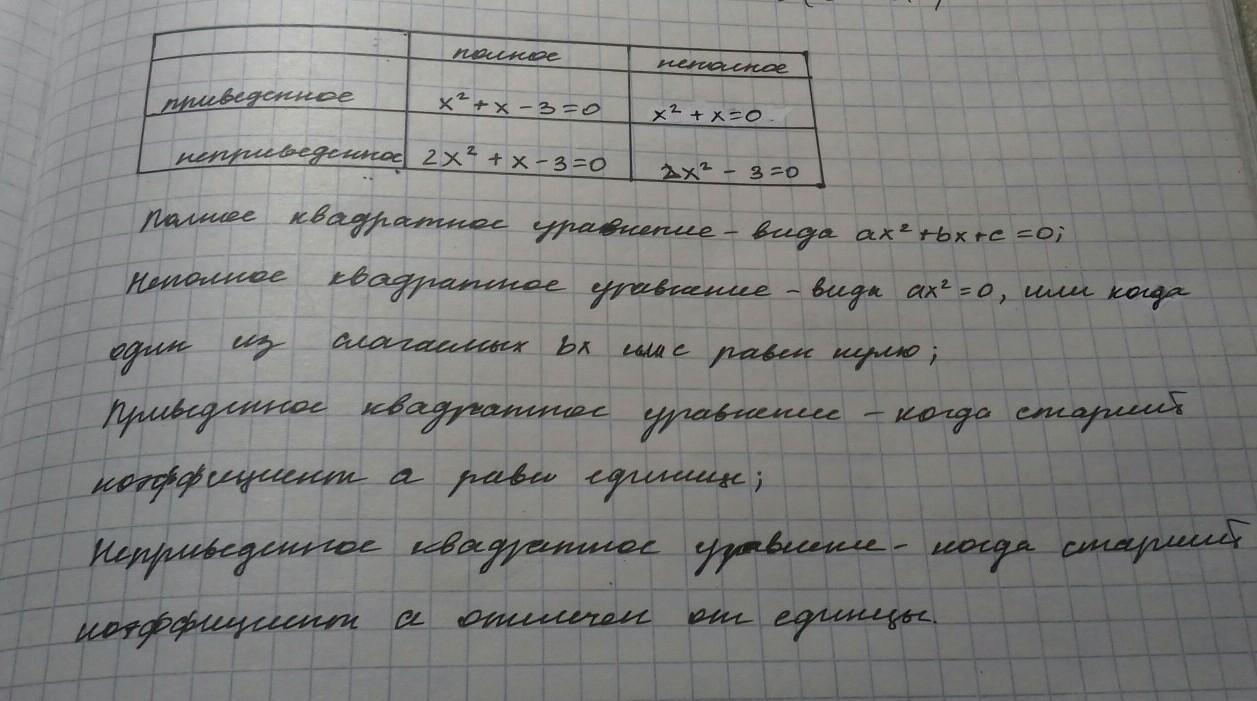 полное неполное
приведенное x² + x - 3 = 0 x² + x = 0
неприведенное 2x² + x - 3 = 0 2x² - 3 = 0
Полное квадратное уравнение - вида ax² + bx + c = 0;
Неполное квадратное уравнение - вида ax² = 0, или когда
один из слагаемых bx или c равен нулю;
Приведенное квадратное уравнение - когда старший
коэффициент a равен единице;
Неприведенное квадратное уравнение - когда старший
коэффициент a отличен от единицы.